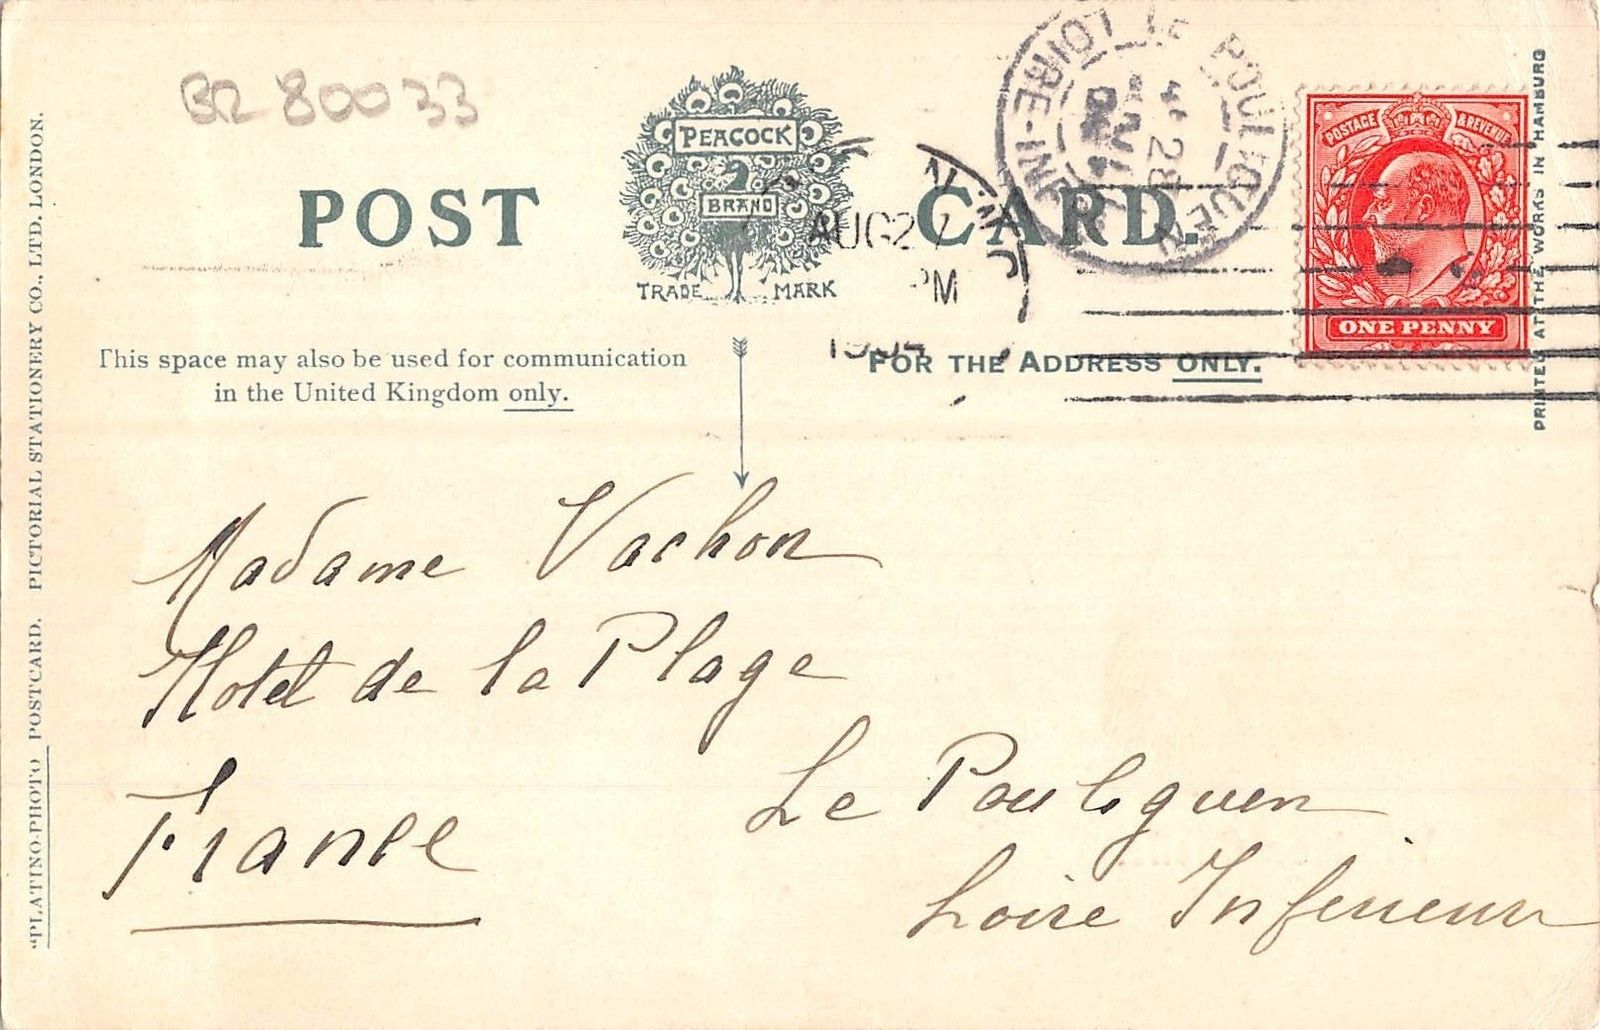 BR 80033
POST CARD.
PEACOCK
BRAND
TRADE MARK
AUG 27
PM
LE POULIGUEN
LOIRE-INF
28
POSTAGE & REVENUE
ONE PENNY
This space may also be used for communication
in the United Kingdom only.
FOR THE ADDRESS ONLY.
Madame Vachon
Hotel de la Plage
Le Pouliguen
Loire Inferieure
France
"PLATINO-PHOTO POSTCARD. PICTORIAL STATIONERY CO., LTD. LONDON.
PRINTED AT THE WORKS IN HAMBURG